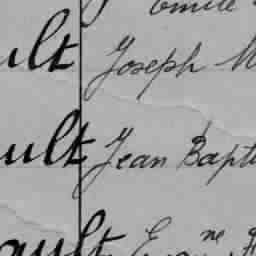 Emile
ult Joseph M
ult Jean Bapti
ault